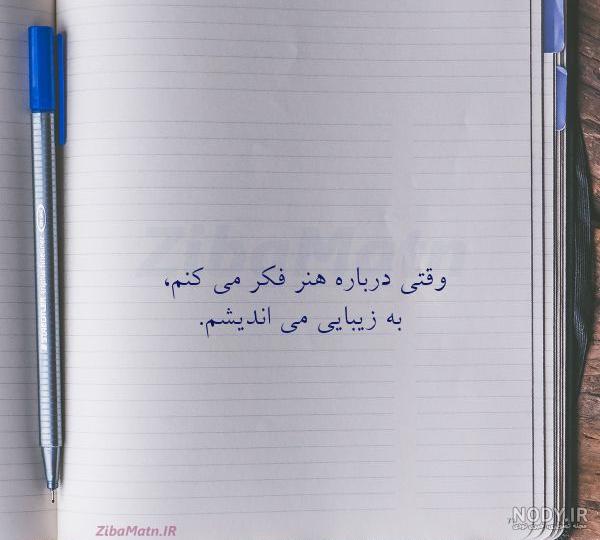 ZibaMatn
وقتی درباره هنر فکر می کنم،
به زیبایی می اندیشم.
ZibaMatn.IR
NODY.IR